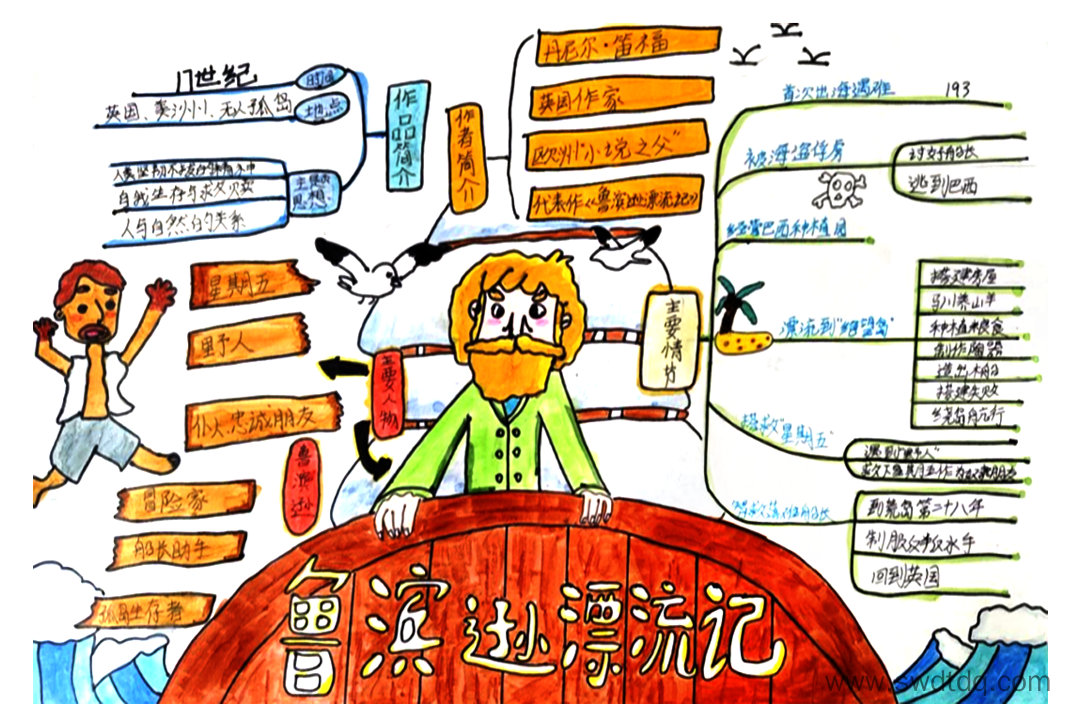 17世纪
时间
英国、美洲、无人孤岛
地点
作品简介
主题思想
自我生存与求救赎
人与自然的关系
作者简介
丹尼尔·笛福
英国作家
欧洲“小说之父”
代表作《鲁滨逊漂流记》
首次出海遇难
193
被海盗俘虏
讨好船长
逃到巴西
经营巴西种植园
主要情节
漂流到“绝望岛”
搭建房屋
驯养山羊
种植粮食
制作陶器
造出木船
搭建失败
绕岛舟无行
搭救“星期五”
遇到“野人”
解救落难船长
到荒岛第二十八年
制服叛变水手
回到英国
星期五
野人
仆人.忠诚朋友
主要人物
鲁滨逊
冒险家
船长助手
孤岛生存者
鲁滨逊漂流记
www.swdtdq.com